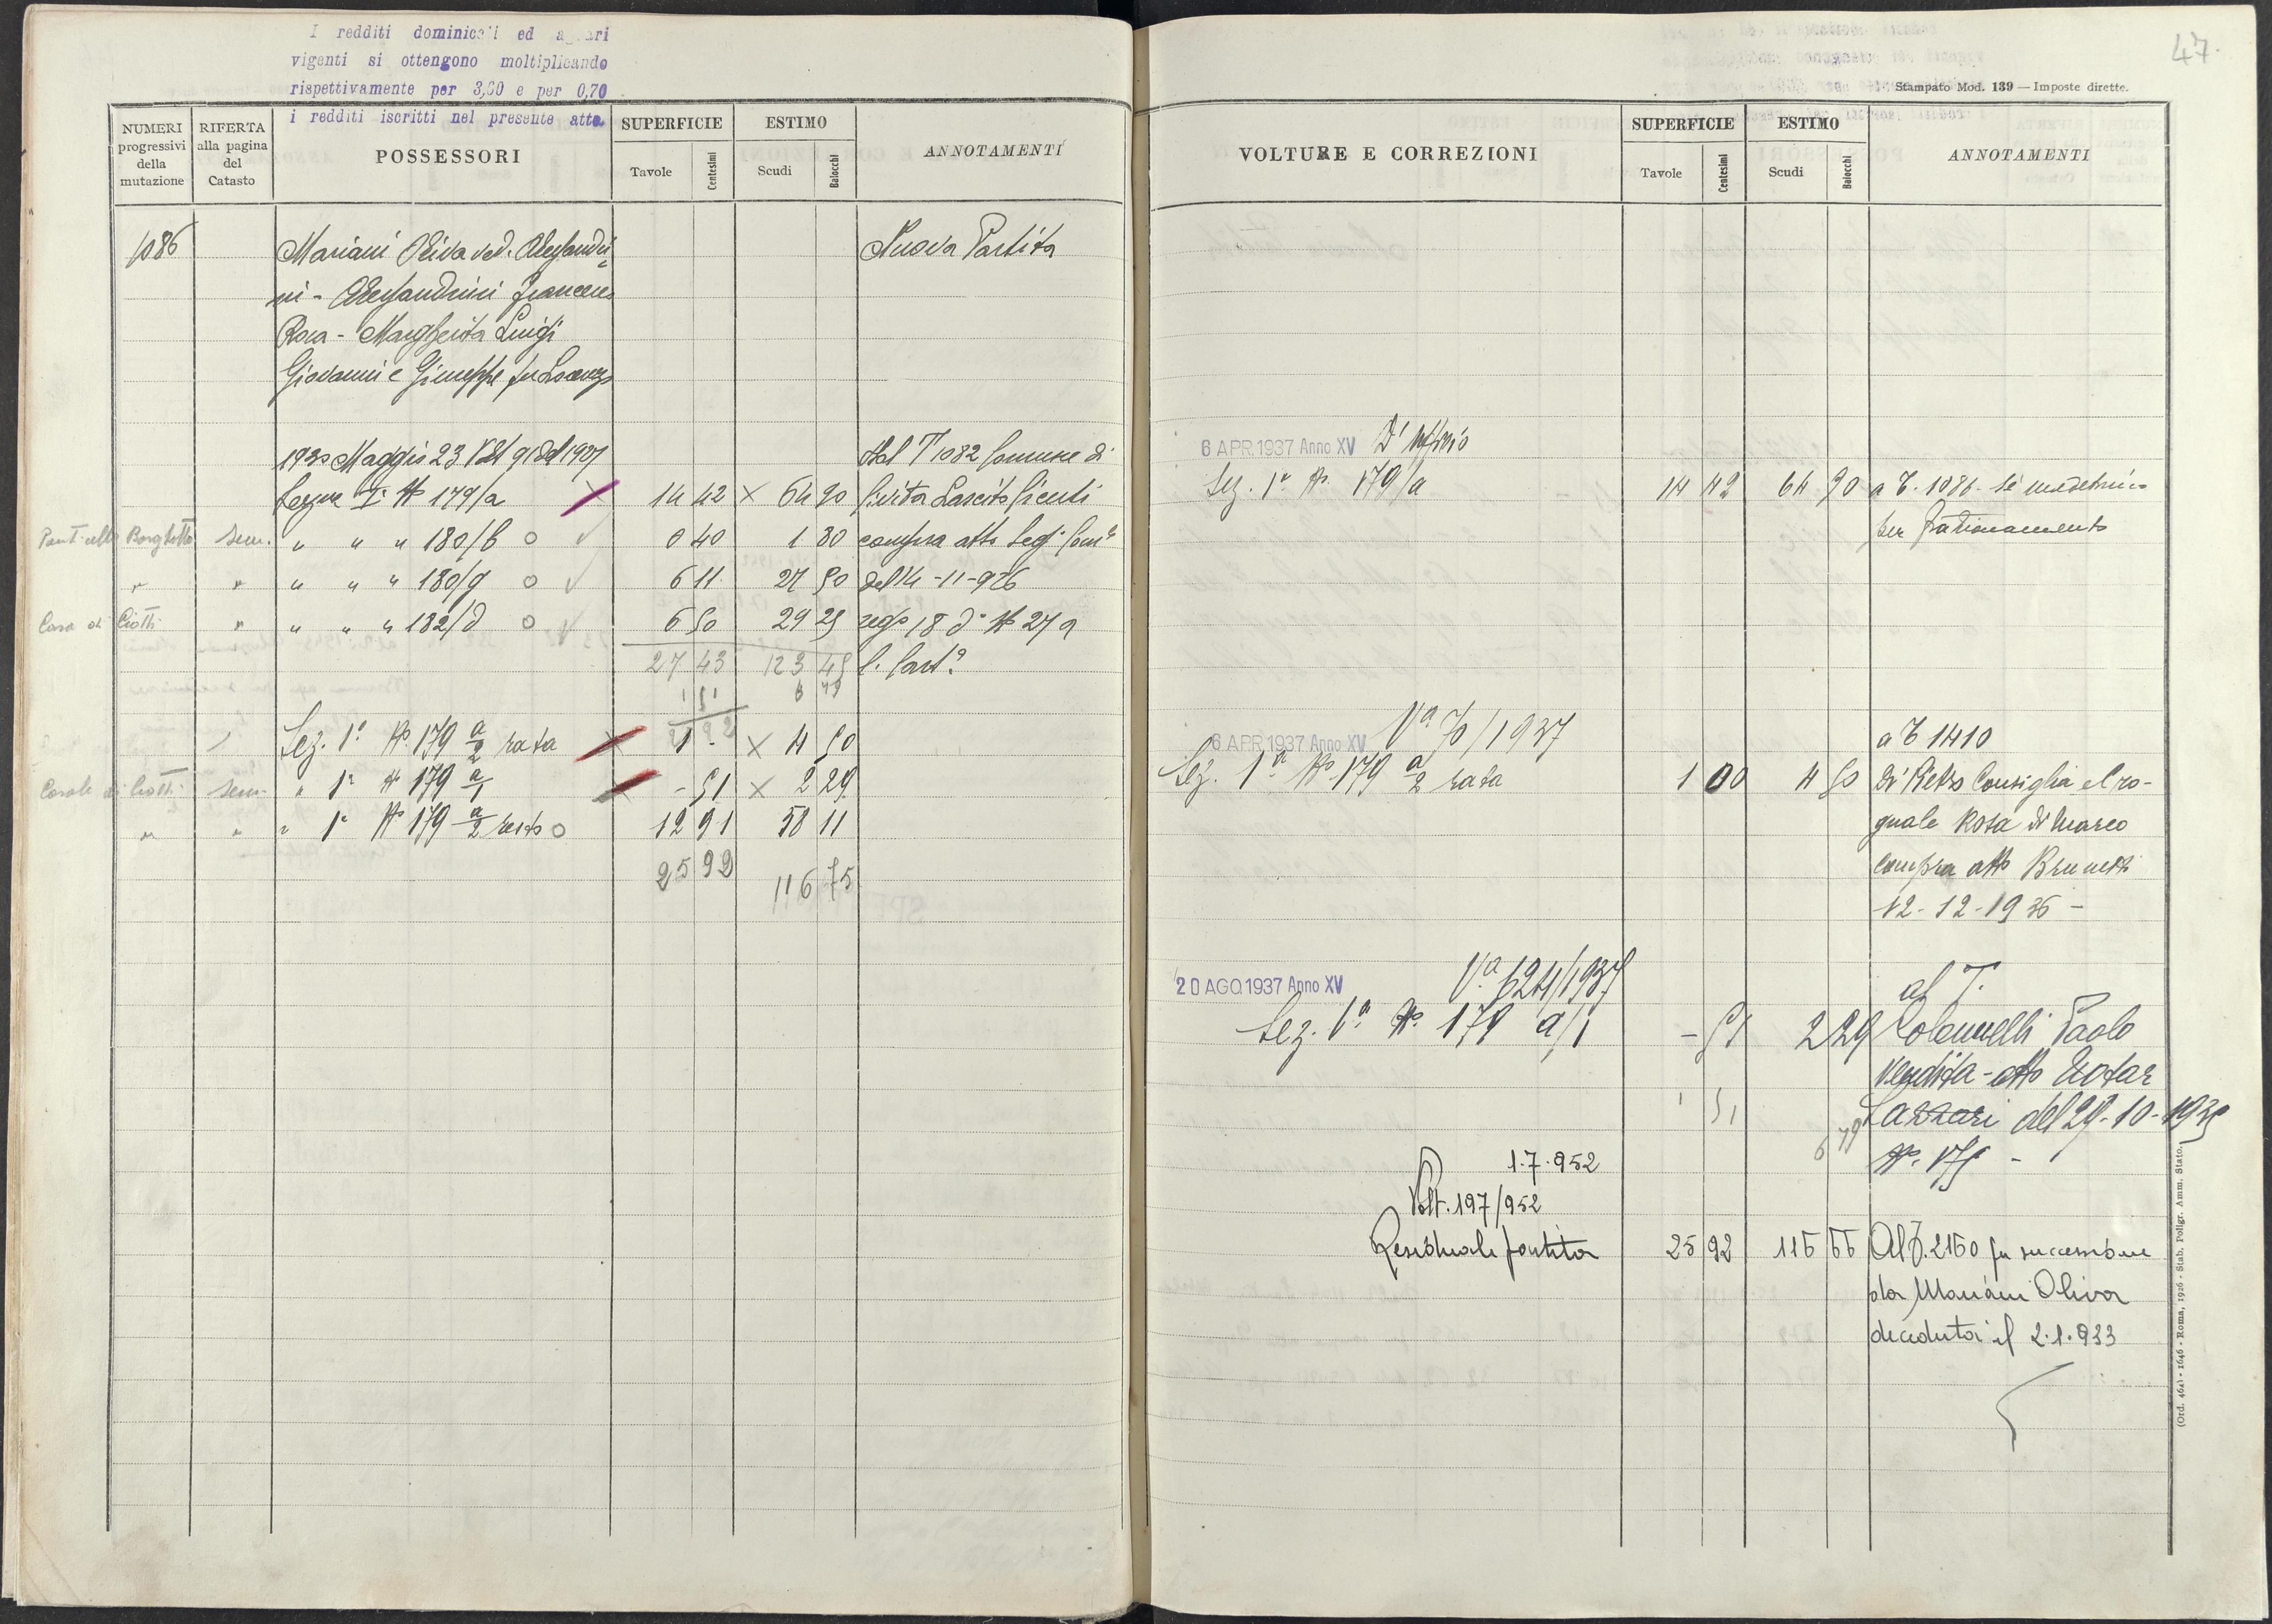 I redditi dominicali ed agrari
vigenti si ottengono moltiplicando
rispettivamente per 3,60 e per 0,70
i redditi iscritti nel presente atto.
NUMERI progressivi della mutazione
RIFERTA alla pagina del Catasto
POSSESSORI
SUPERFICIE
Tavole
Centesimi
ESTIMO
Scudi
Baiocchi
ANNOTAMENTI
1086 Mariani Oliva ved. Alessandri= Nuova Partita
ni - Alessandrini Francesco
Rosa - Margherita Luigi
Giovanni e Giuseppe fu Lorenzo
1930 Maggio 23 Vlt 91 del 1927 Dal T 1082 Comune di
Sezione I^a N° 179/a 14 42 × 64 90 Civita Lascito Cienti
Borghetto sem. " " " 180/b o 0 40 1 80 compra atto Seg. Com^le
" " " " " 180/g o 6 11 27 50 del 14-11-926
Casa di Ciotti " " " " 182/d o 6 50 29 25 reg° 18 d° N° 279
27 43 123 45
1 51 6 79
2592
Sez. 1^a N° 179 a/2 rata 1 - × 4 50
Casale di Ciotti sem. " 1^a N° 179 a/1 - 51 × 2 29
" " " 1^a N° 179 a/2 resto o 12 91 58 11
25 92 116 75
47.
Stampato Mod. 139 — Imposte dirette.
VOLTURE E CORREZIONI
SUPERFICIE
Tavole
Centesimi
ESTIMO
Scudi
Baiocchi
ANNOTAMENTI
6 APR. 1937 Anno XV D'Ufficio
Sez. 1^a N° 179/a 14 42 64 90 a T. 1086 - Sé medesimi
per frazionamento
6 APR. 1937 Anno XV V^a 70/1937 a T 1410
Sez. 1^a N° 179 a/2 rata 1 00 4 50 Di Pietro Consiglia e Cro-
gnale Rosa di Marco
compra atto Brunetti
12-12-1936 -
20 AGO. 1937 Anno XV V^a 624/1937 al T.
Sez. 1^a N° 179 a/1 - 51 2 29 Colonnelli Paolo
vendita - atto Notar
1 51 6 79 Lazzari del 29-10-1935
N° 175 -
1.7.952
Volt. 197/952
Residuale partita 25 92 116 66 Al T. 2160 per successione
da Mariani Oliva
deceduta il 2.1.933
(Ord. 464) - 1646 - Roma, 1926 - Stab. Poligr. Amm. Stato.